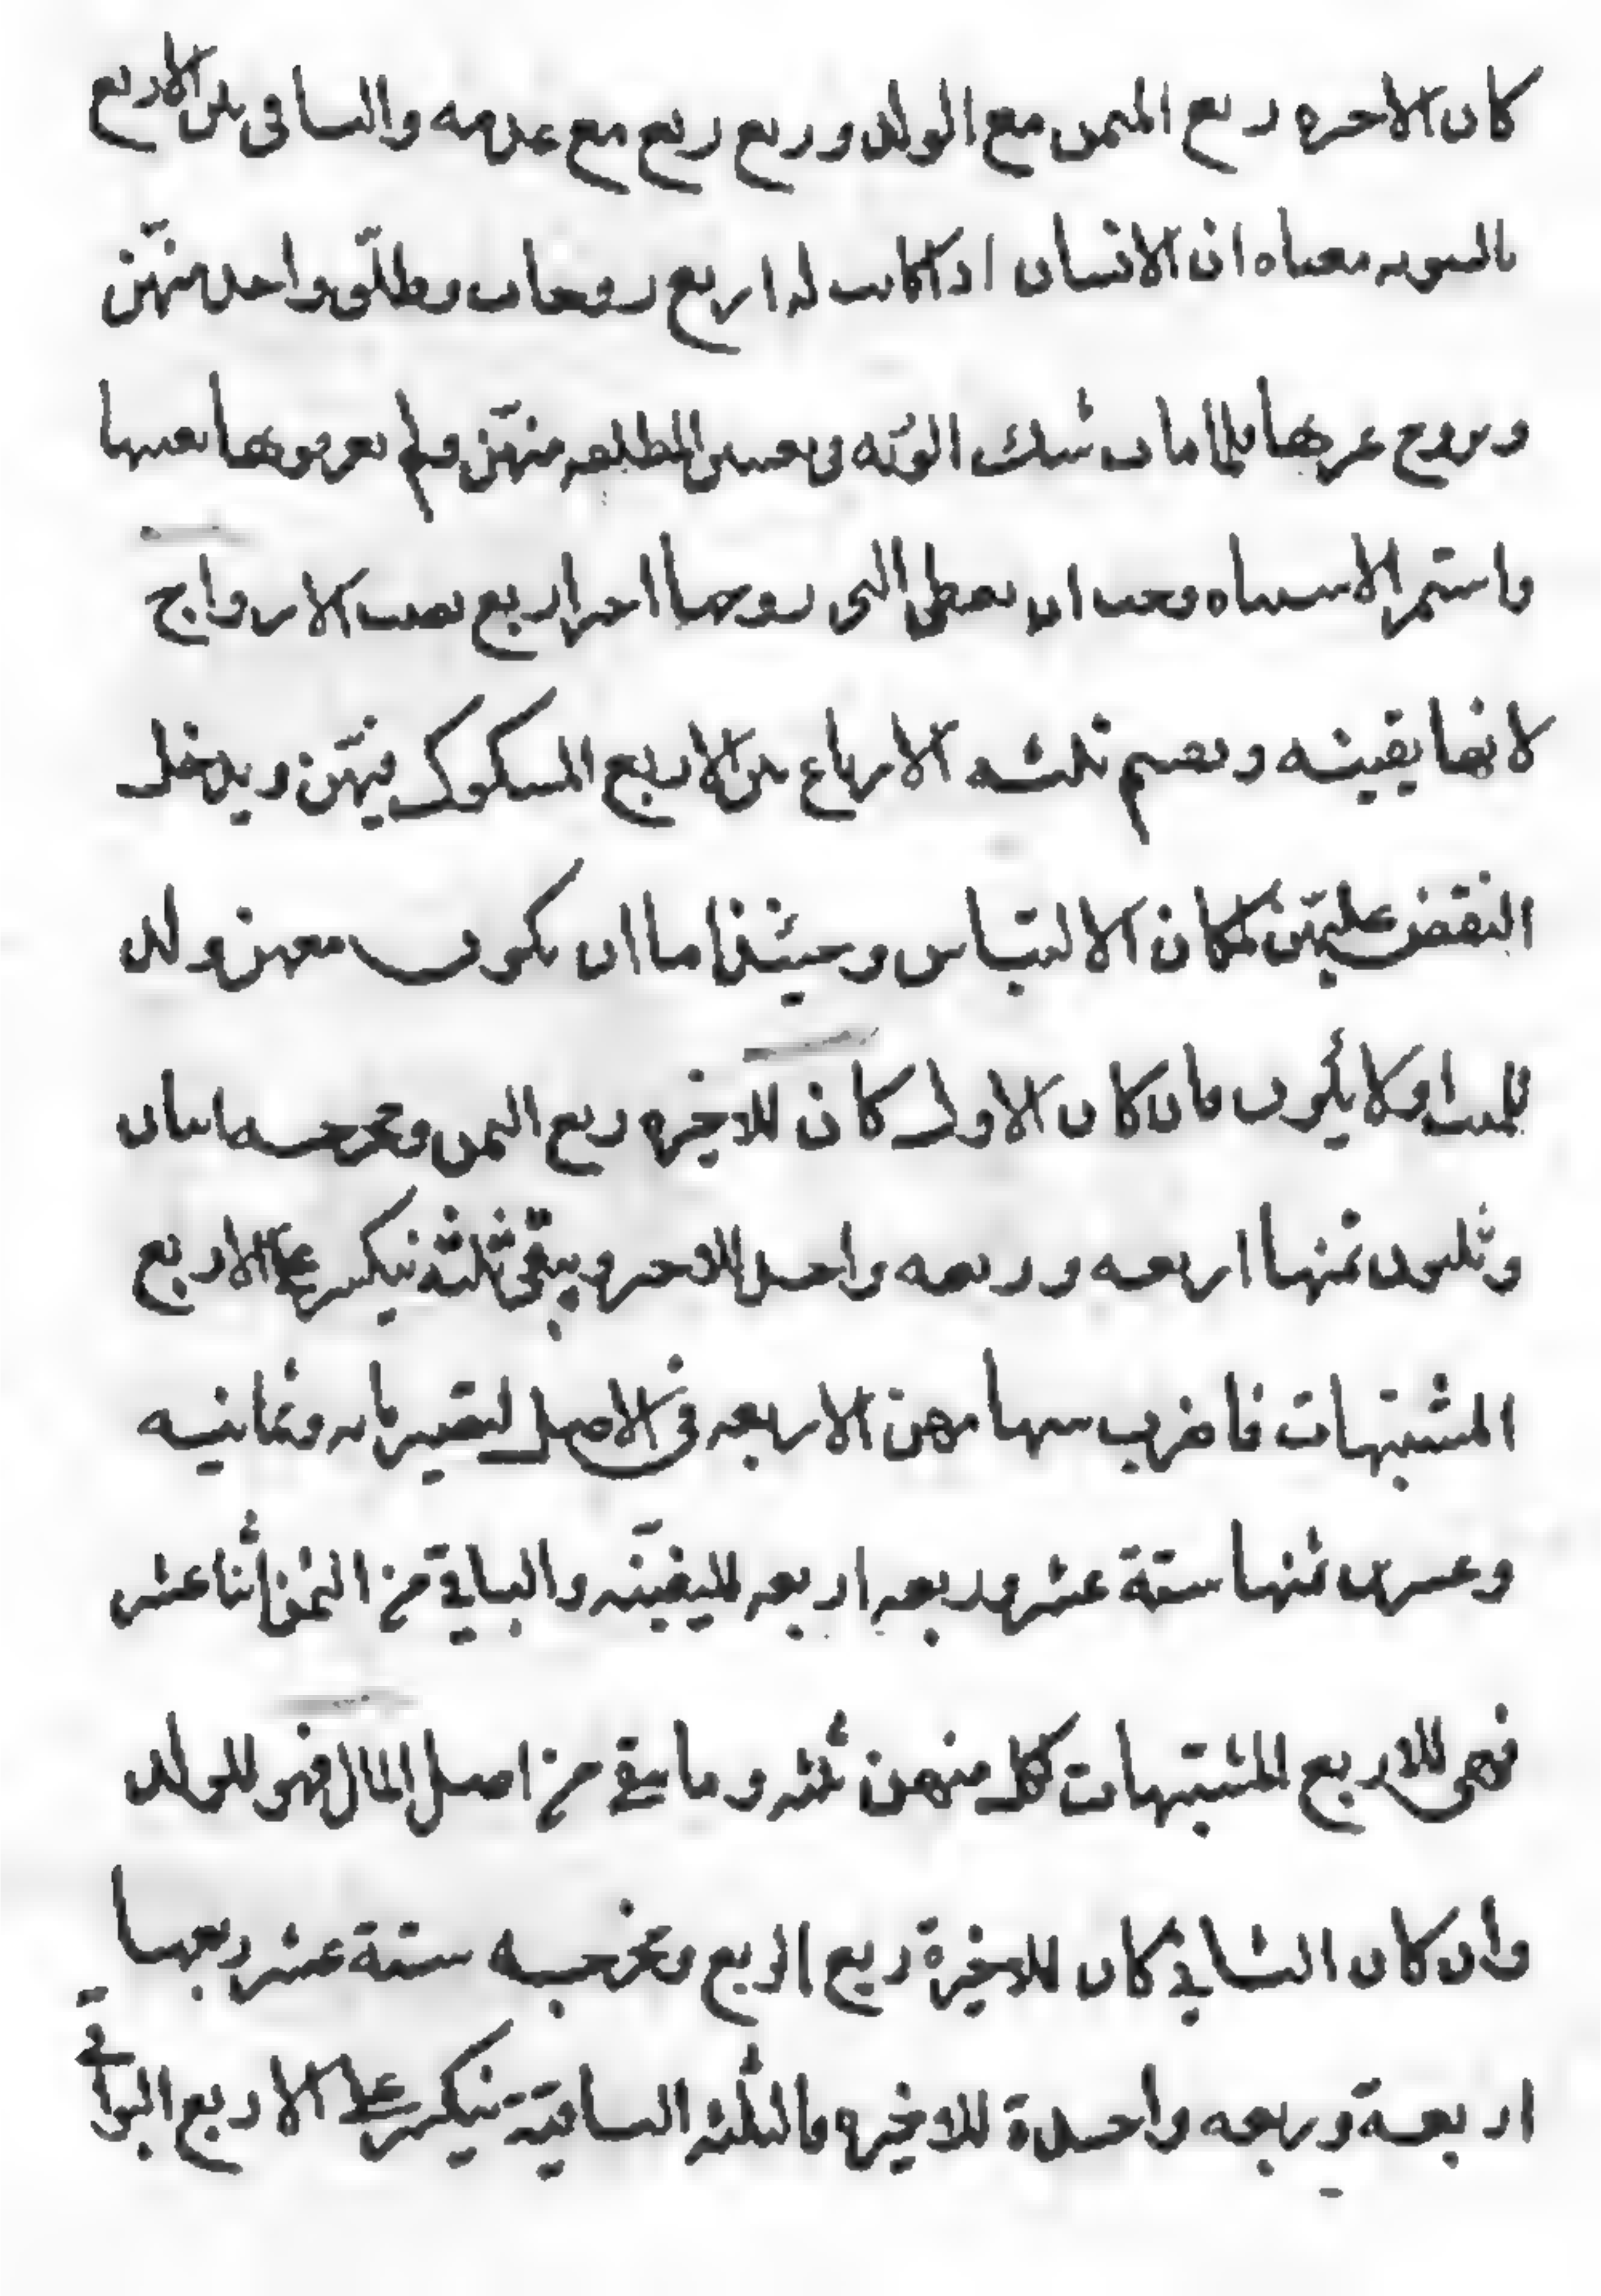 كان الاخيره ربع الثمن مع الولد وربع ربع مع عدمه والباقى بين الاربع
بالسويه معناه ان الانسان اذا كانت له اربع زوجات وطلّق واحد منهّن
وتزوج غيرها فلما مات شك الورثه فى تعيين المطلقه منهّن ولم يعرفوها بعينها
واستمر الاشتباه وجب ان يعطى التى زوجها اخيرا ربع نصيب الازواج
لانها يقينيه ويقسم ثلثه الارباع بين الاربع المشكوك فيهّن ويدخل
النقص عليهّن لمكان الالتباس وحينئذ اما ان يكون معهن ولد
للميت او لا يكون فان كان الاول كان للاخيره ربع الثمن ومخرجه اثنان
وثلثون ثمنها اربعه وربعه واحد للاخيره ويبقى ثلثه ينكسر على الاربع
المشتبهات فاضرب سهامهن الاربعه فى الاصل لتصير مايه وثمانيه
وعشرين ثمنها ستة عشر وربعه اربعه لليقينّه والباقي من الثمن اثنا عشر
فهى للاربع المشتبهات كل منهن ثلثه وما بقي من اصل المال فهو للولد
وان كان الثاني كان للاخيرة ربع الربع ومخرجه ستة عشر ربعها
اربعة وربعه واحدة للاخيره فالثلثه الباقية ينكسر على الاربع البواقي